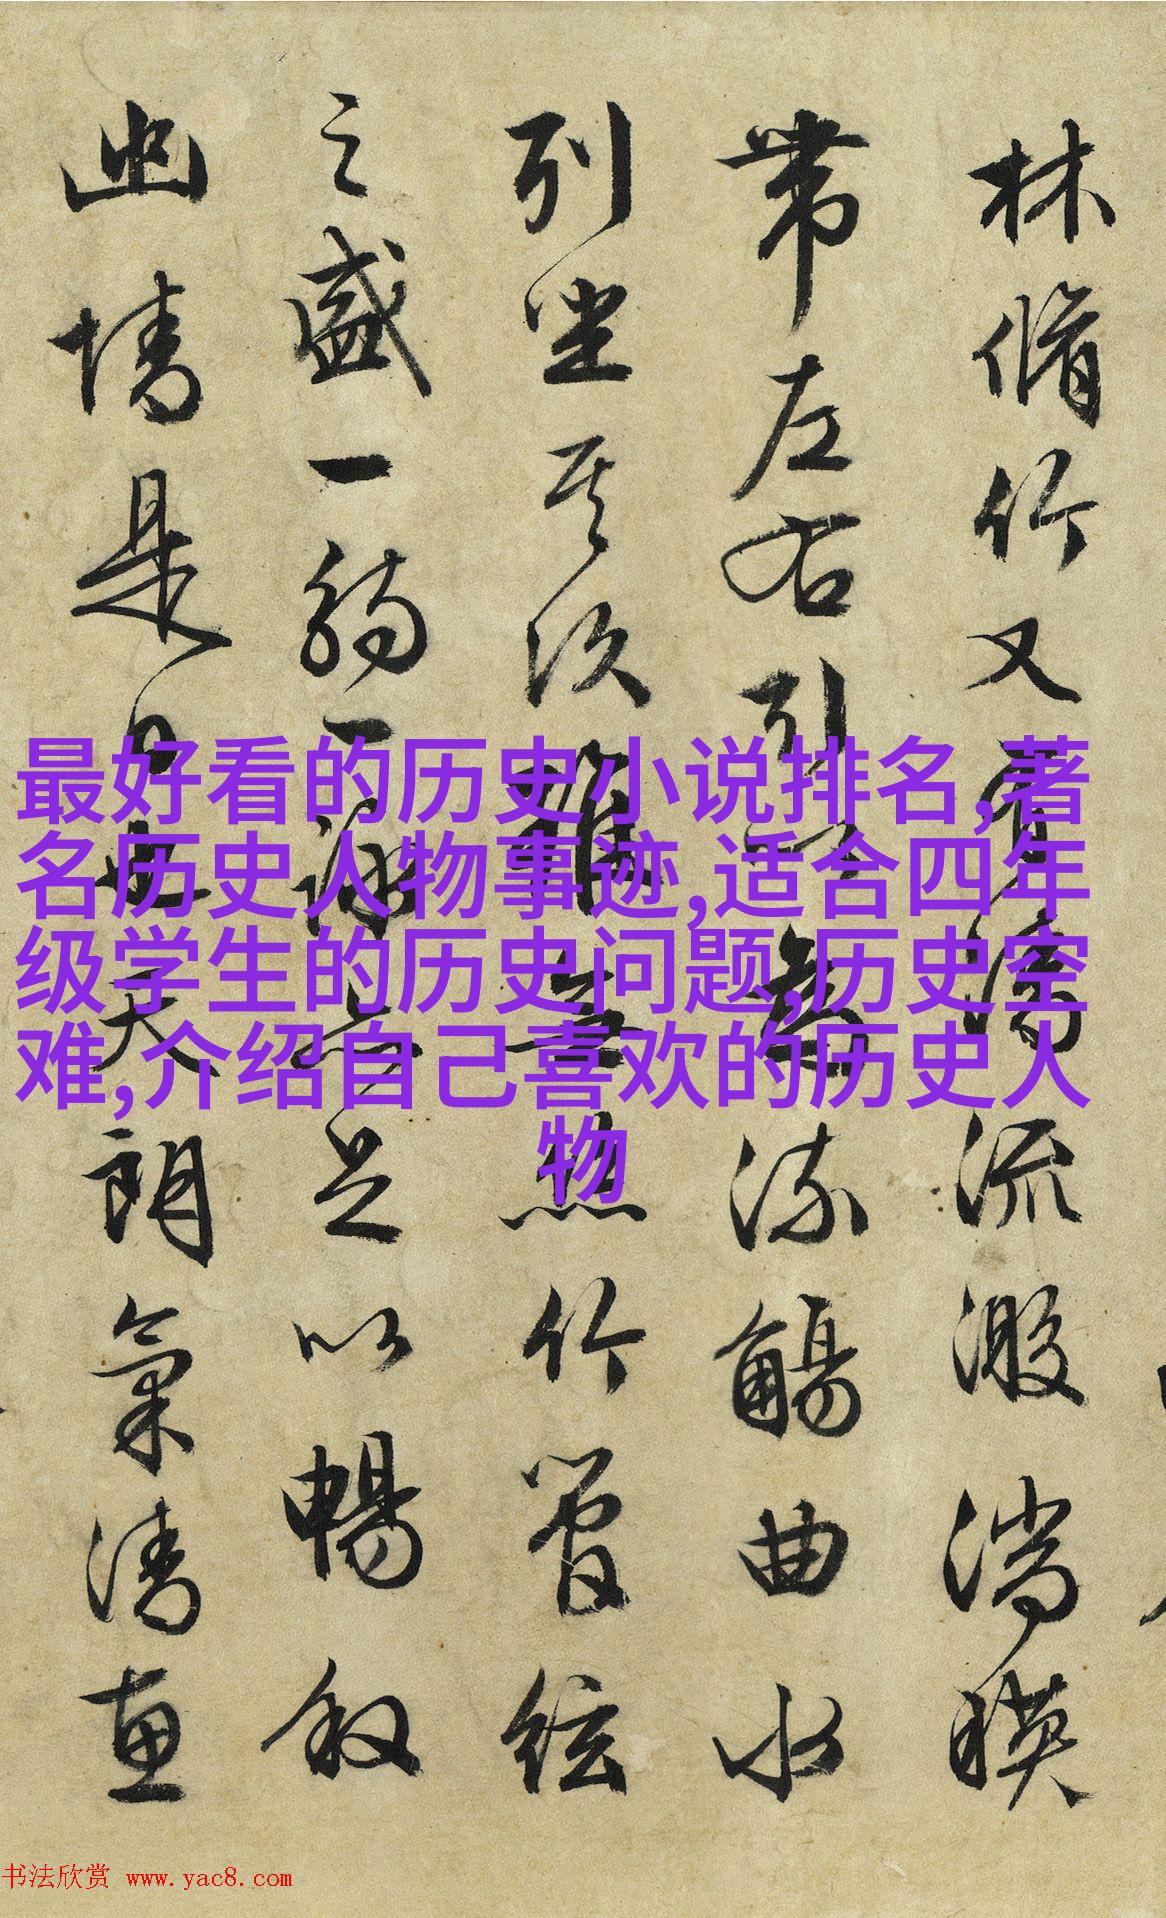 林脩竹又有清流激湍暎
帶左右引以為流觴曲水
列坐其次雖無絲竹管絃
之盛一觴一詠亦足以暢叙
幽情是日也天朗氣清惠
最好看的历史小说排名,著
名历史人物事迹,适合四年
级学生的历史问题,历史空
难,介绍自己喜欢的历史人
物
书法欣赏 www.yac8.com